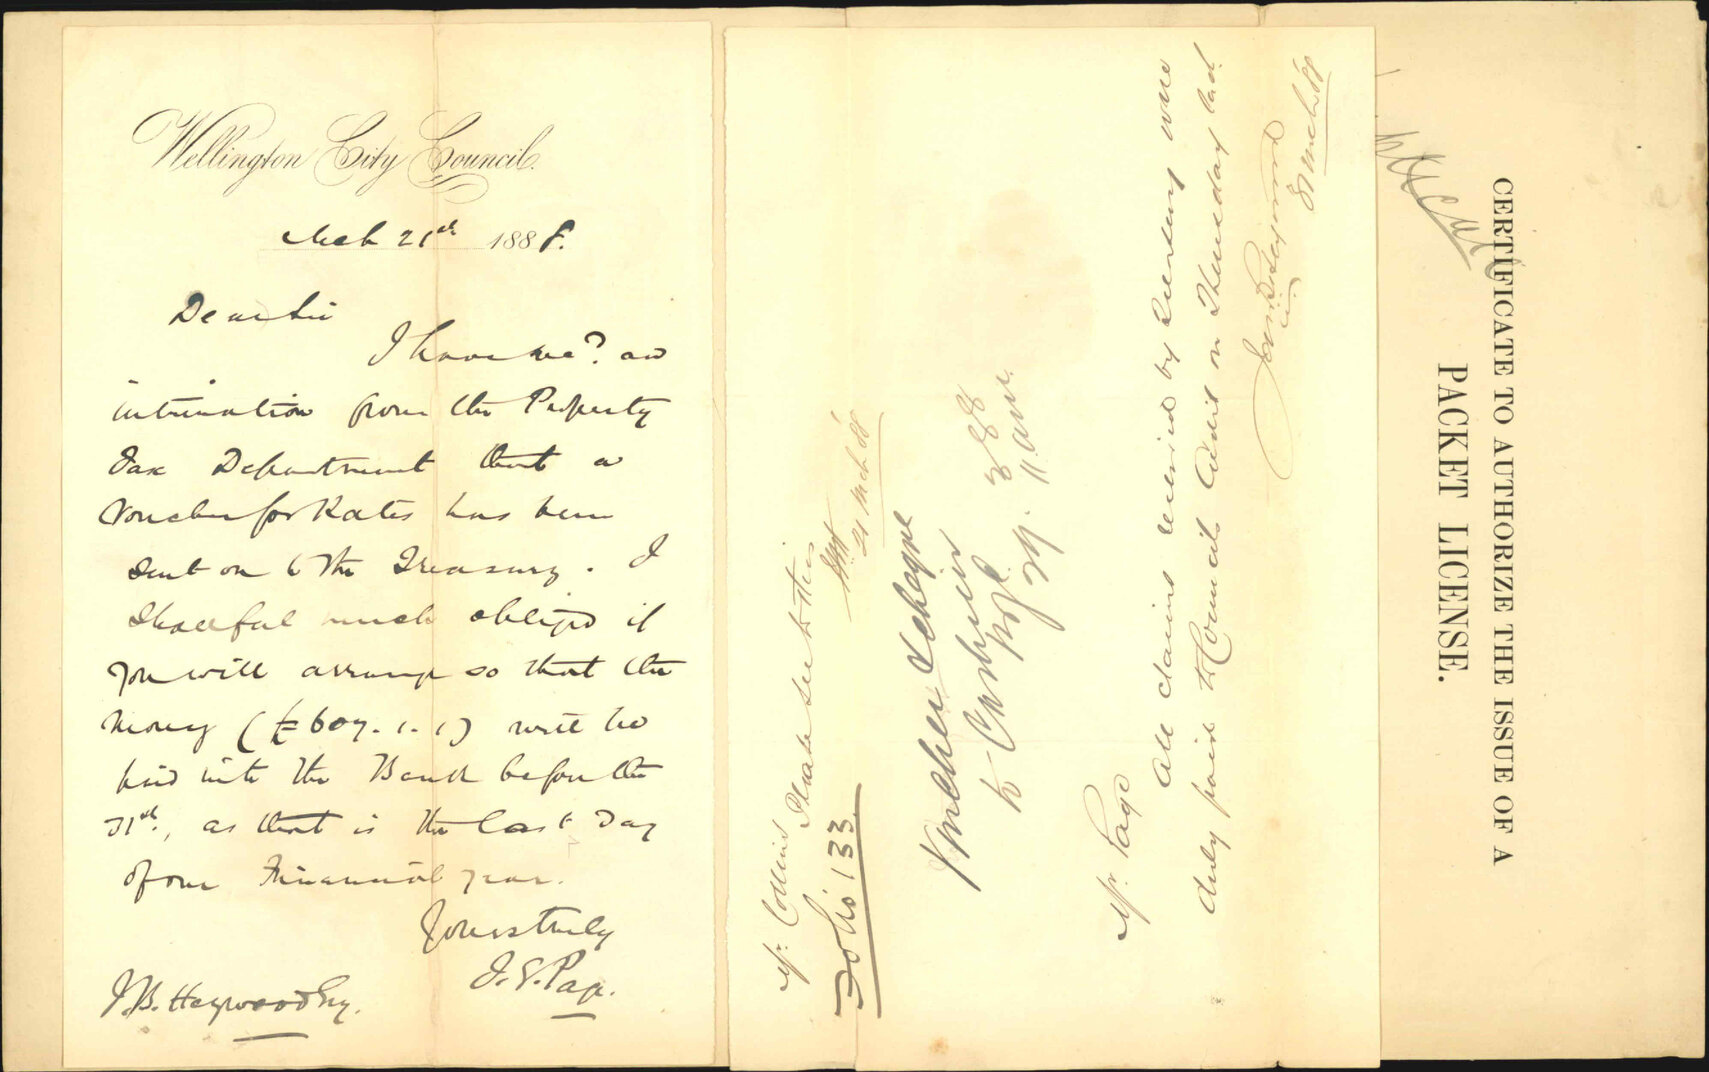 Wellington City Council.
Mch 21st 1888.
Dear Sir
I have rec? an
intimation from the Property
Tax Department that a
Voucher for Rates has been
sent on to the Treasury. I
shall feel much obliged if
you will arrange so that the
money (£607.1.1) will be
paid into the Bank before the
31st, as that is the last day
of our Financial year.
Yours truly
J. B. Heywood Esq.
J. E. Page.
Mr. Collins Please see to this
21 Mch 88
Folio 133
Voucher & cheque
to
3 88
11 a.m.
Mr. Page
All claims received by Treasury were
duly paid to Council's Credit on Thursday last.
Jas B Heywood
CERTIFICATE TO AUTHORIZE THE ISSUE OF A
PACKET LICENSE.